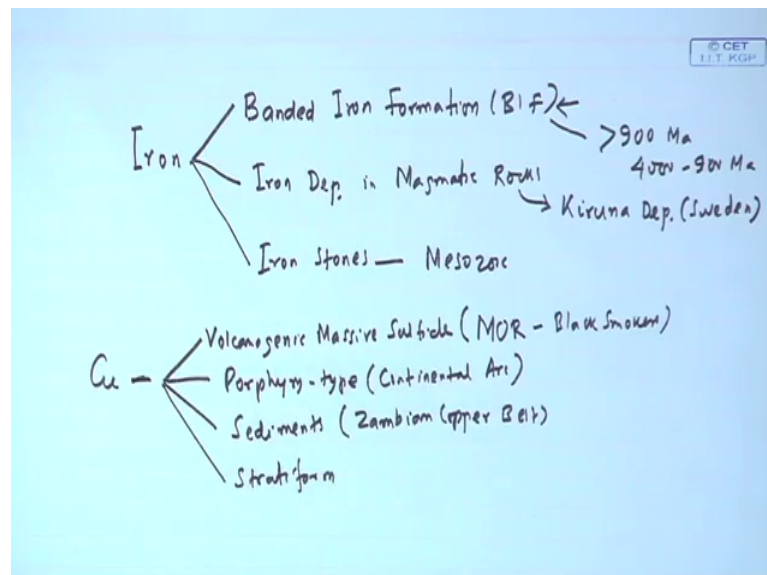 © CET
I.I.T. KGP
Banded Iron Formation (BIF) ←
> 900 Ma
4000 - 900 Ma
Iron
Iron Dep. in Magmatic Rocks
→ Kiruna Dep. (Sweden)
Iron Stones — Mesozoic
Volcanogenic Massive Sulfide (MOR - Black Smokers)
Cu — Porphyry-type (Continental Arc)
Sediments (Zambian Copper Belt)
Stratiform